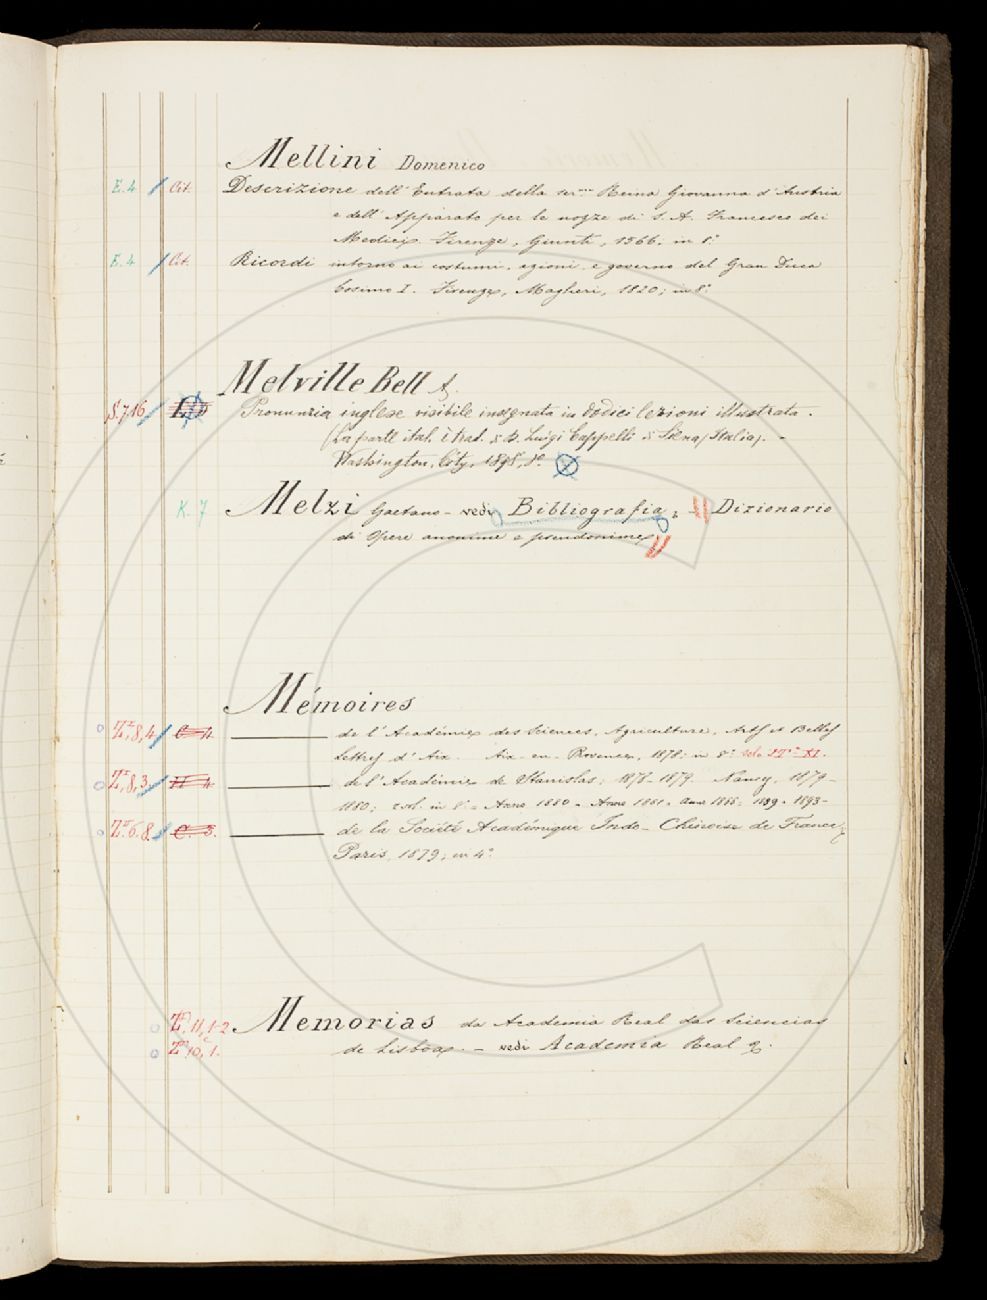 Mellini Domenico
E. 4 Cit. Descrizione dell'Entrata della ser.ma Reina Giovanna d'Austria
e dell'Apparato per le nozze di S. A. Francesco dei
Medici. Firenze, Giunti, 1566; in 8.°
E. 4 Cit. Ricordi intorno ai costumi, azioni, e governo del Gran Duca
Cosimo I. Firenze, Magheri, 1820; in 8.°
Melville Bell A.
S. 7,16 Pronunzia inglese visibile insegnata in dodici lezioni illustrata.
(La parte ital. è trad. Luigi Cappelli Siena (Italia). -
Washington, City, 8.°
K. 7 Melzi Gaetano - vedi Bibliografia; - Dizionario
di Opere anonime e pseudonime
Mémoires
8,4 C. 4. de l'Académie des Sciences, Agriculture, Arts et Belles
Lettres d'Aix. Aix-en-Provence, 1878; in 8.° XI.
8,3 4 de l'Académie de Stanislas; 1878-1879. Nancy, 1879-
1880; 2 vol. in 8.° Anno 1880 - Anno 1881. Anno 1888; 1889. 1893-
6. 8 C. 5. de la Société Académique Indo-Chinoise de France;
Paris, 1879; in 4.°
11, 1-2 Memorias da Academia Real das Sciencias
10, 1. de Lisboa. - vedi Academia Real